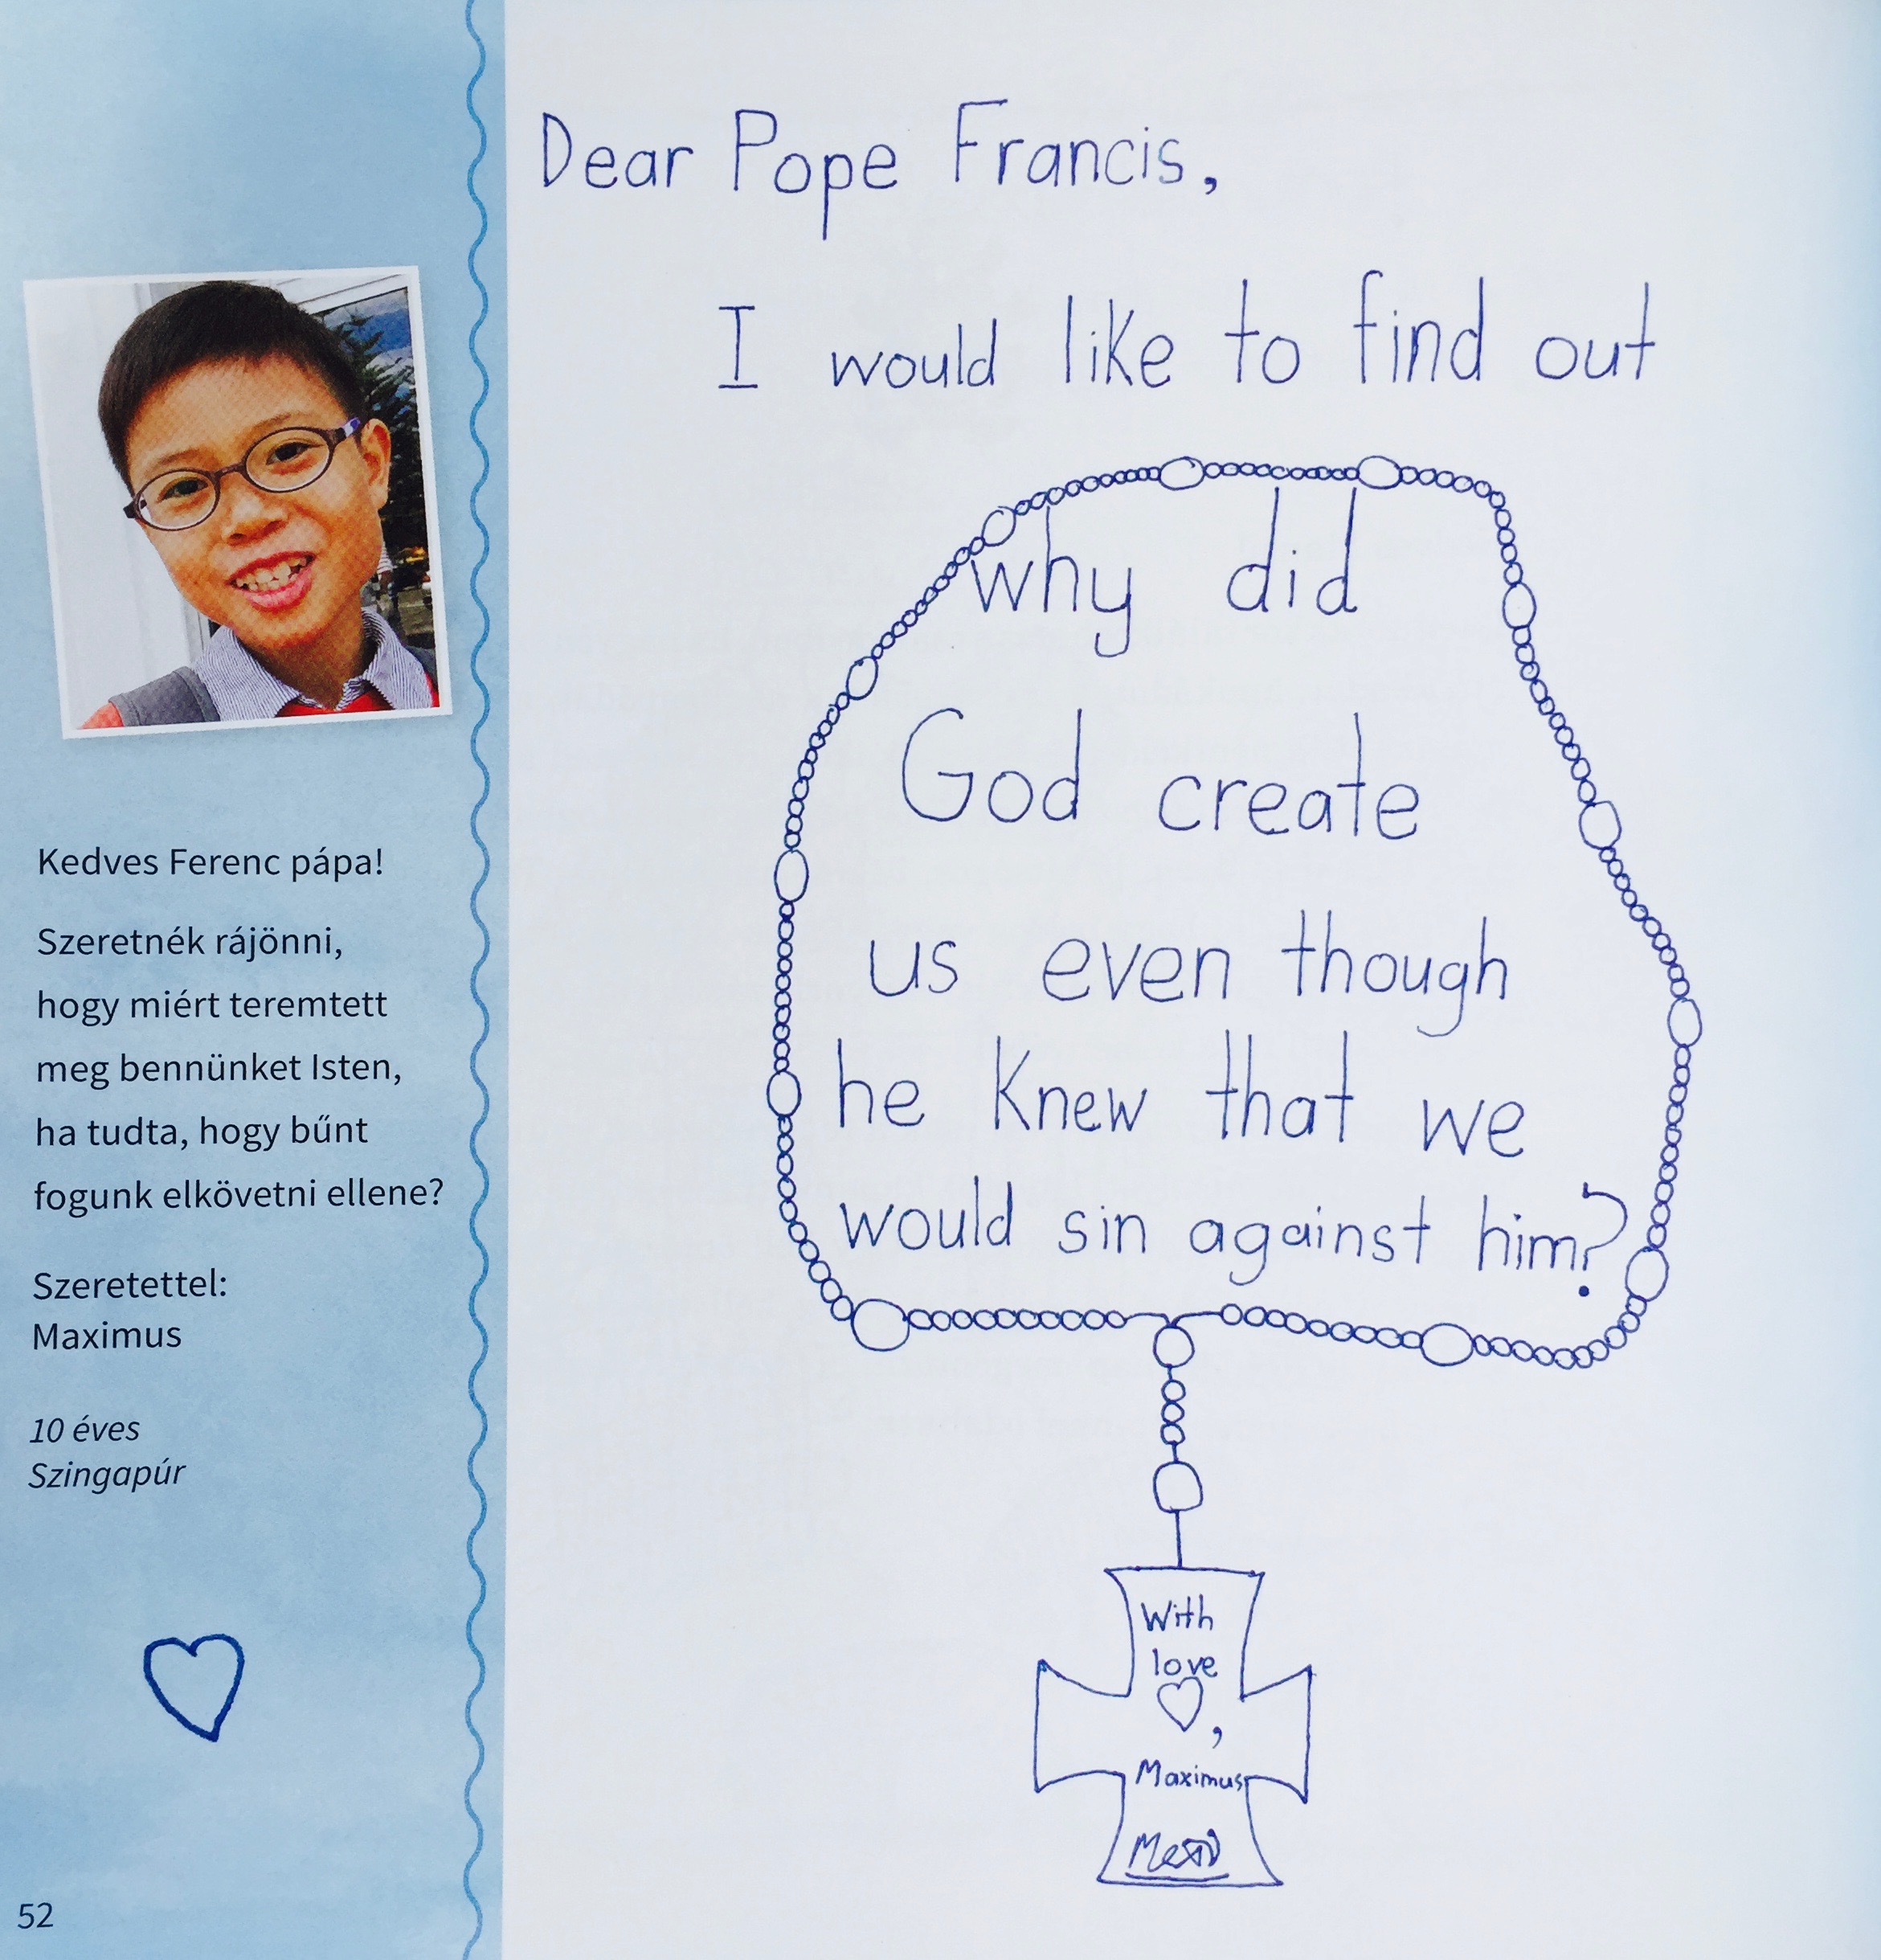 Kedves Ferenc pápa!
Szeretnék rájönni,
hogy miért teremtett
meg bennünket Isten,
ha tudta, hogy bűnt
fogunk elkövetni ellene?
Szeretettel:
Maximus
10 éves
Szingapúr
52
Dear Pope Francis,
I would like to find out
why did
God create
us even though
he knew that we
would sin against him?
With
love
,
Maximus